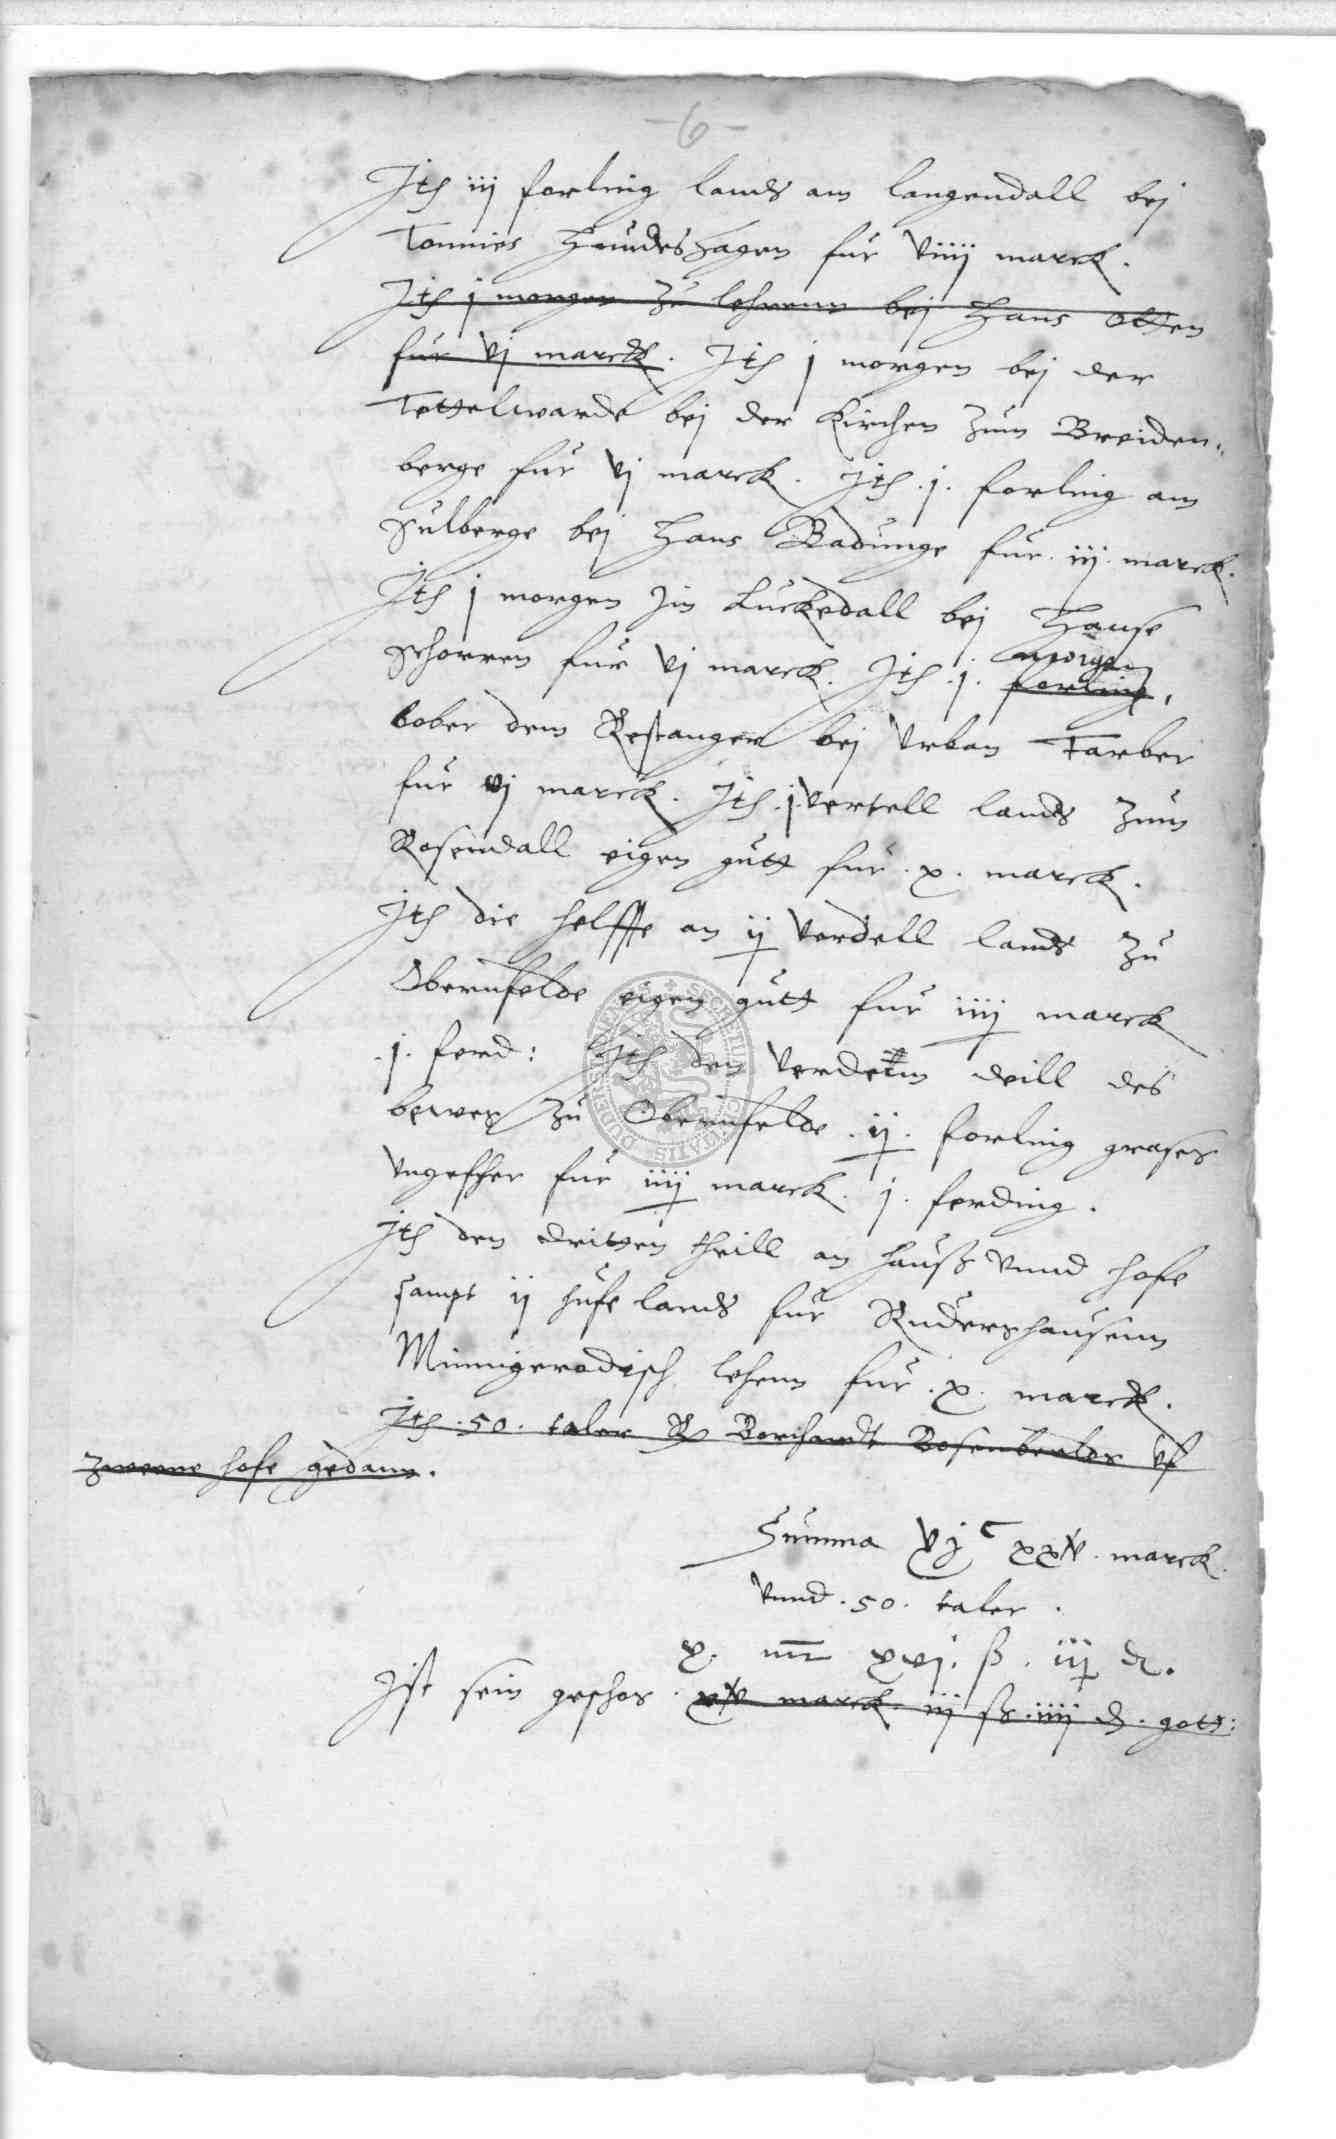 -6-
Jtē iij forling lands am langendall bej
Tonnies Hundeshagen fur viiij marck.
Jtē j morgen zu lehenn bej Hans Otten
fur vj marck. Jtē j morgen bej der
Tettelwarde bej der Kirchen zum Breiden„
berge fur vj marck. Jtē .j. forling am
Sulberge bej Hans Badunge fur iij marck.
Jtē j morgen jm Luckedall bej Hanse
Schorren fur vj marck. Jtē .j. forling, morgen
bober dem Restanger bej Urban Farber
fur vj marck. Jtē .j. vertell lands zum
Rosendall eigen gutt fur .x. marck.
Jtē die helffte an ij verdell lands zu
Obernfelde eigen gutt fur iiij marck
.j. ferd: Jtē den verden deill des
zu Obernfelde .ij. forling grases
ungeffer fur iiij marck .j. ferding.
Jtē den dritten theill an hauß unnd hofe
sampt ij hufe lands fur Rudershausenn
Minnigerodisch lehenn fur .x. marck.
Jtē .50. taler Borchardt uf
hofe gedann.
Summa vjᶜ xxv. marck.
unnd .50. taler.
x. mr xvj. ß. iij d.
Jst sein geschos xv marck iij ß. iiij d. gott:
SECRETUM CIVITATIS DUDERSTAT